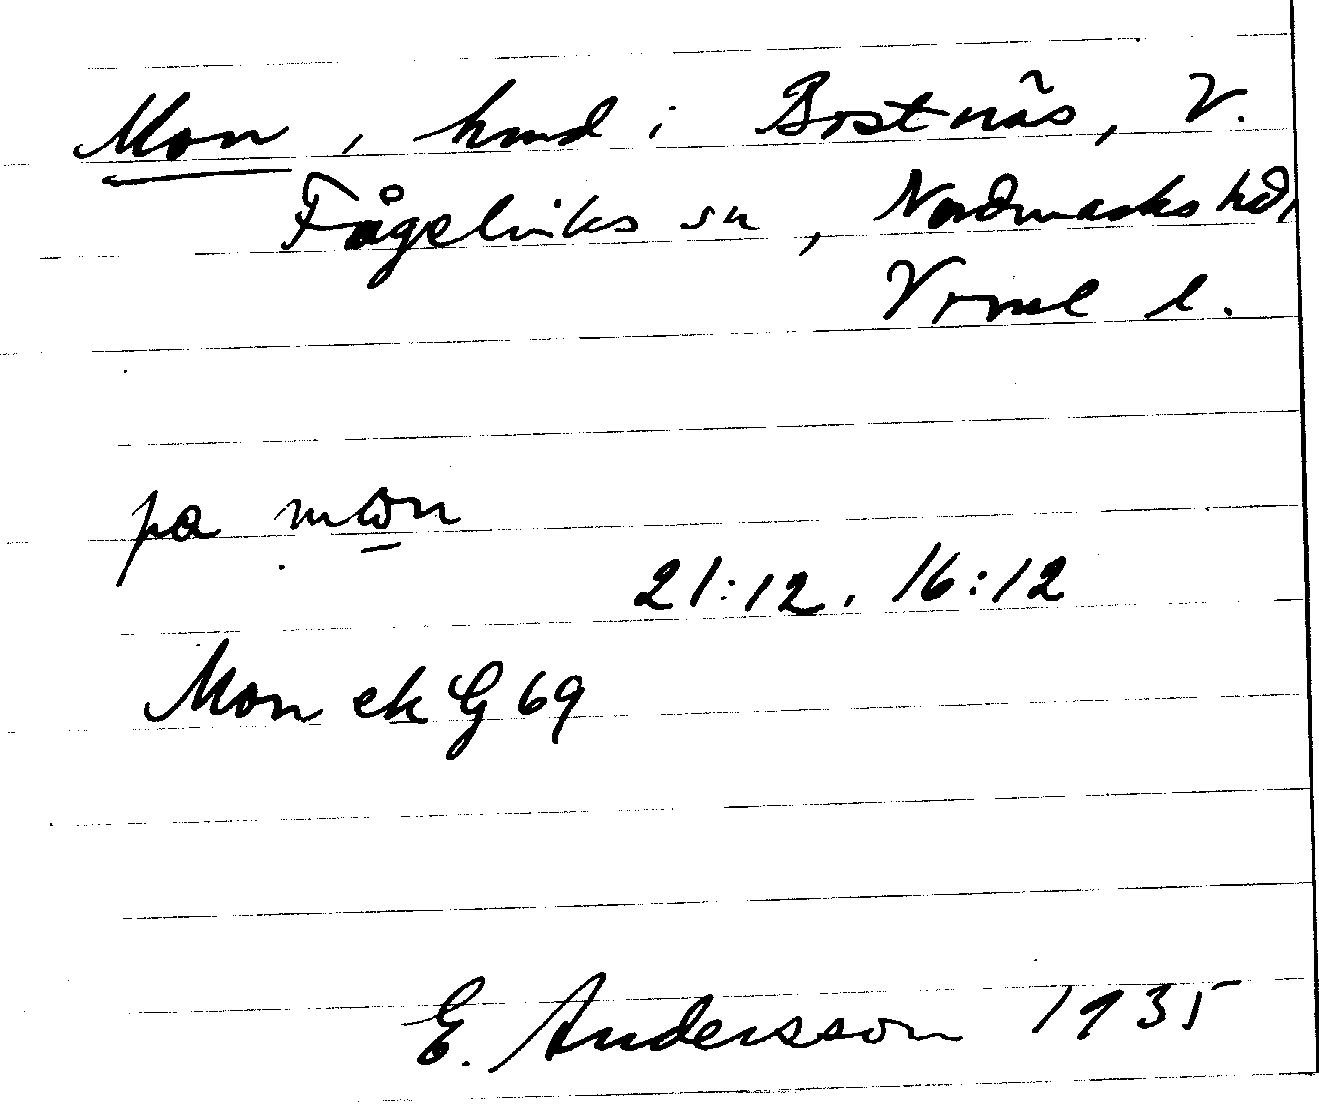 Mon, hmd i Bostnäs, V.
Fågelviks sn, Nordmarks hd,
Vrml l.
pa mωn
21:12. 16:12
Mon ek G 69
E. Andersson 1935